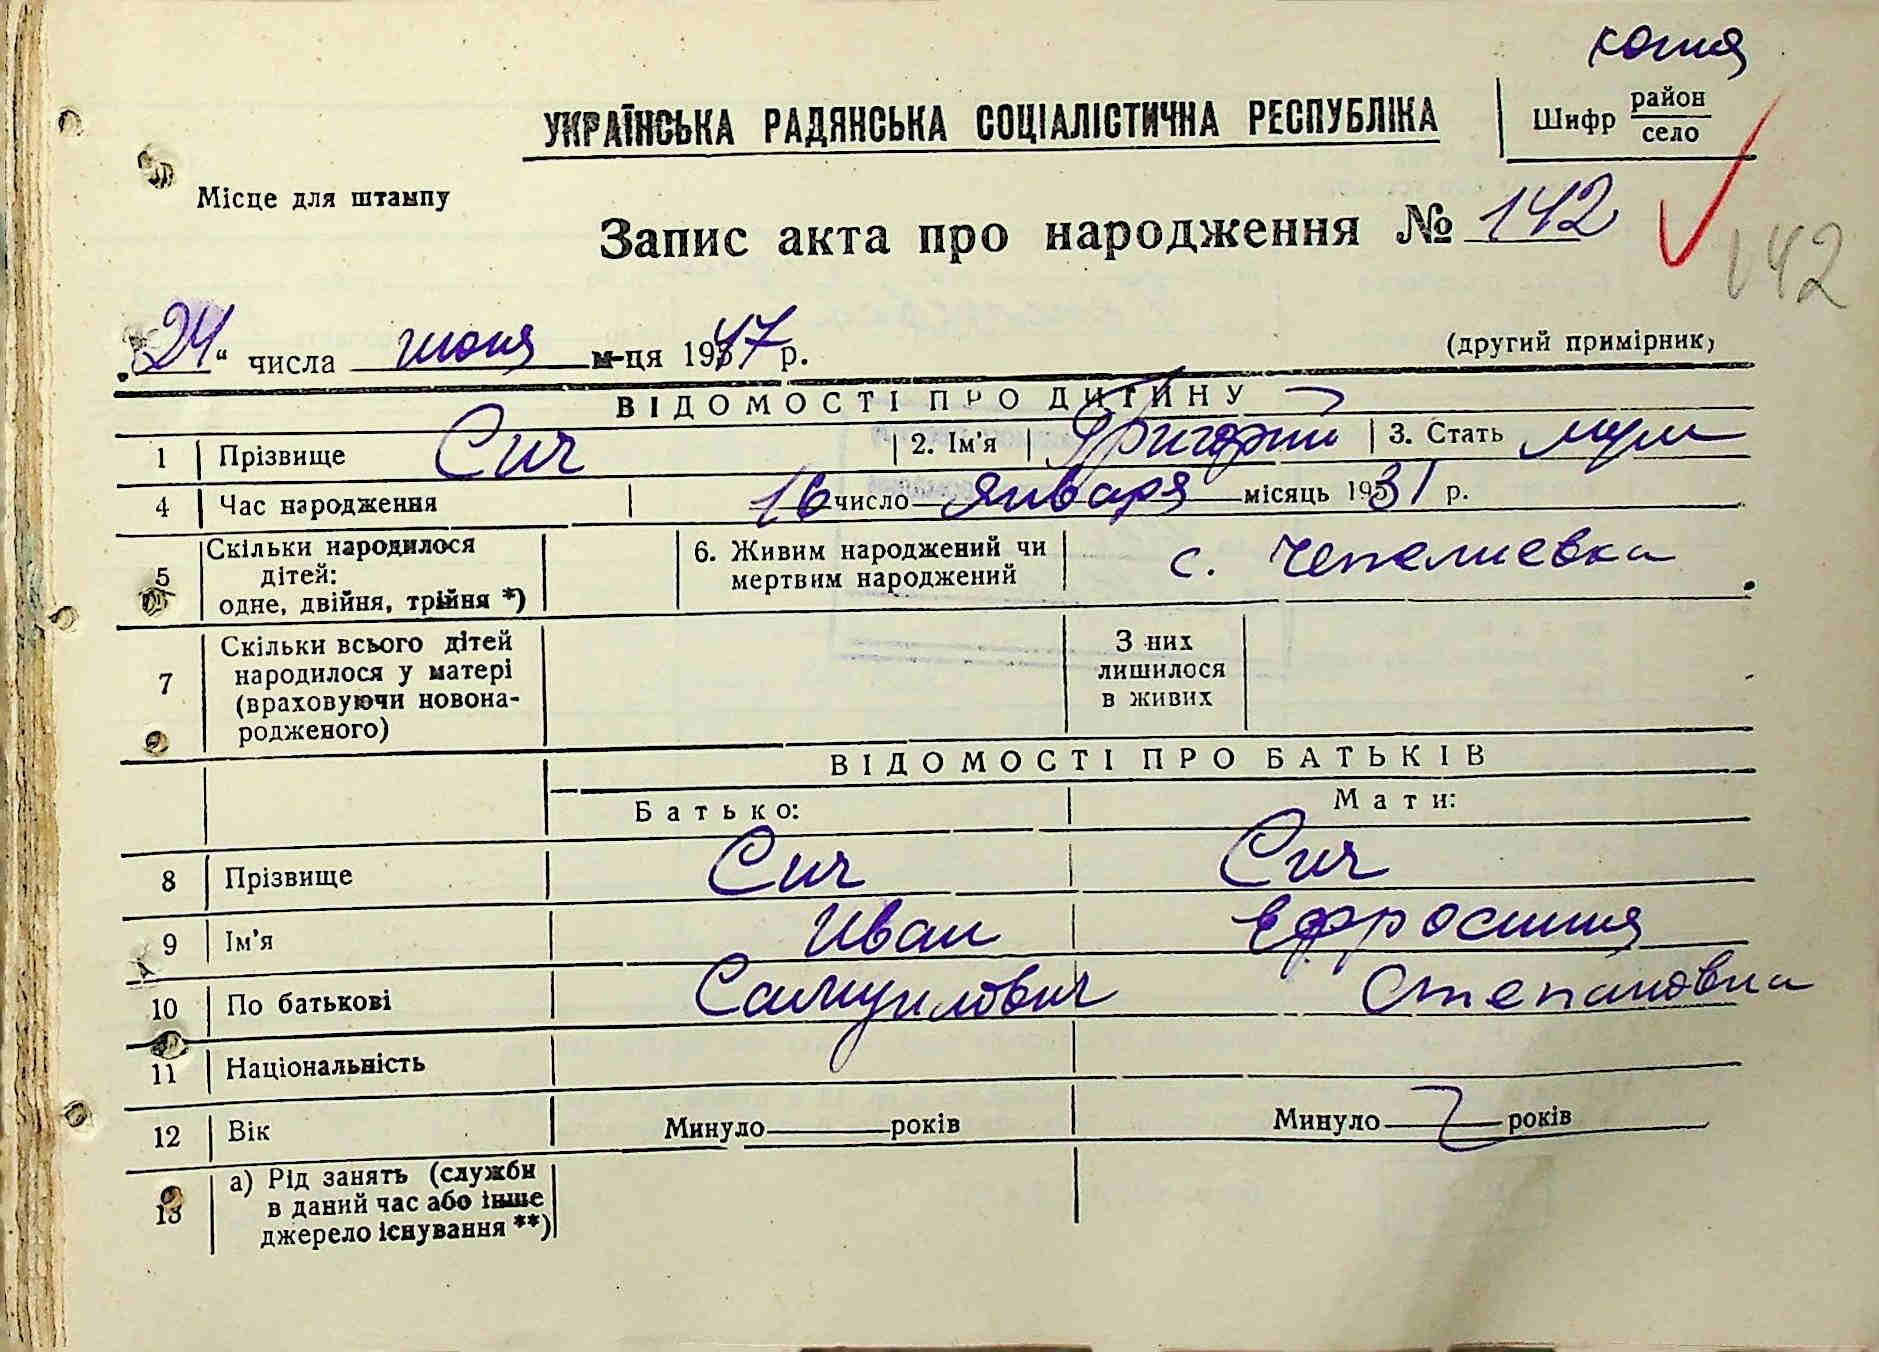 копия
УКРАЇНСЬКА РАДЯНСЬКА СОЦІАЛІСТИЧНА РЕСПУБЛІКА
Шифр район
село
Місце для штампу
Запис акта про народження № 142
142
„24“ числа июня м-ця 1947 р.
(другий примірник)
ВІДОМОСТІ ПРО ДИТИНУ
1 Прізвище Сич 2. Ім'я Григорий 3. Стать муж
4 Час народження 16 число января місяць 1931 р.
5 Скільки народилося дітей: одне, двійня, трійня *) 6. Живим народжений чи мертвим народжений с. Чепелиевка
7 Скільки всього дітей народилося у матері (враховуючи новонародженого) З них лишилося в живих
ВІДОМОСТІ ПРО БАТЬКІВ
Батько: Мати:
8 Прізвище Сич Сич
9 Ім'я Иван Ефросиния
10 По батькові Самуилович Степановна
11 Національність
12 Вік Минуло років Минуло років
13 а) Рід занять (служби в даний час або інше джерело існування **)